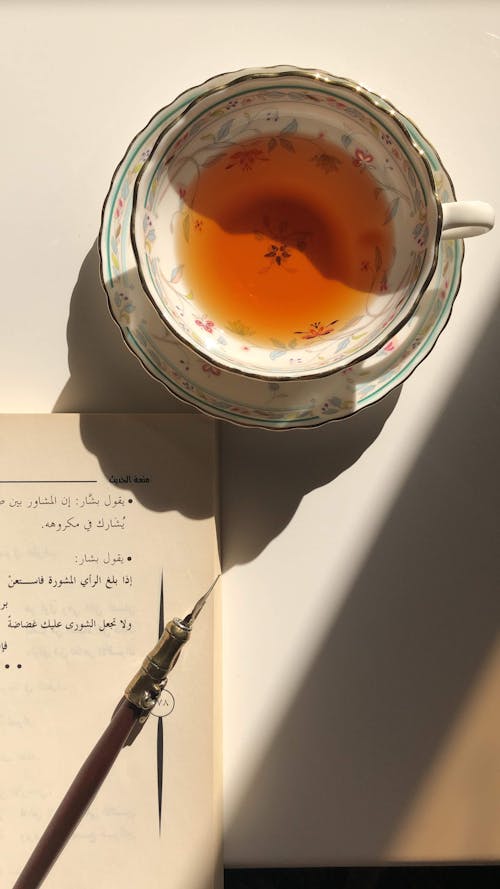 متعة الحديث
• يقول بشَّار: إن المشاور بين
يُشارك في مكروهه.
• يقول بشار:
إذا بلغ الرأي المشورة فاستعنْ
ولا تجعل الشورى عليك غضاضةً
٧٨